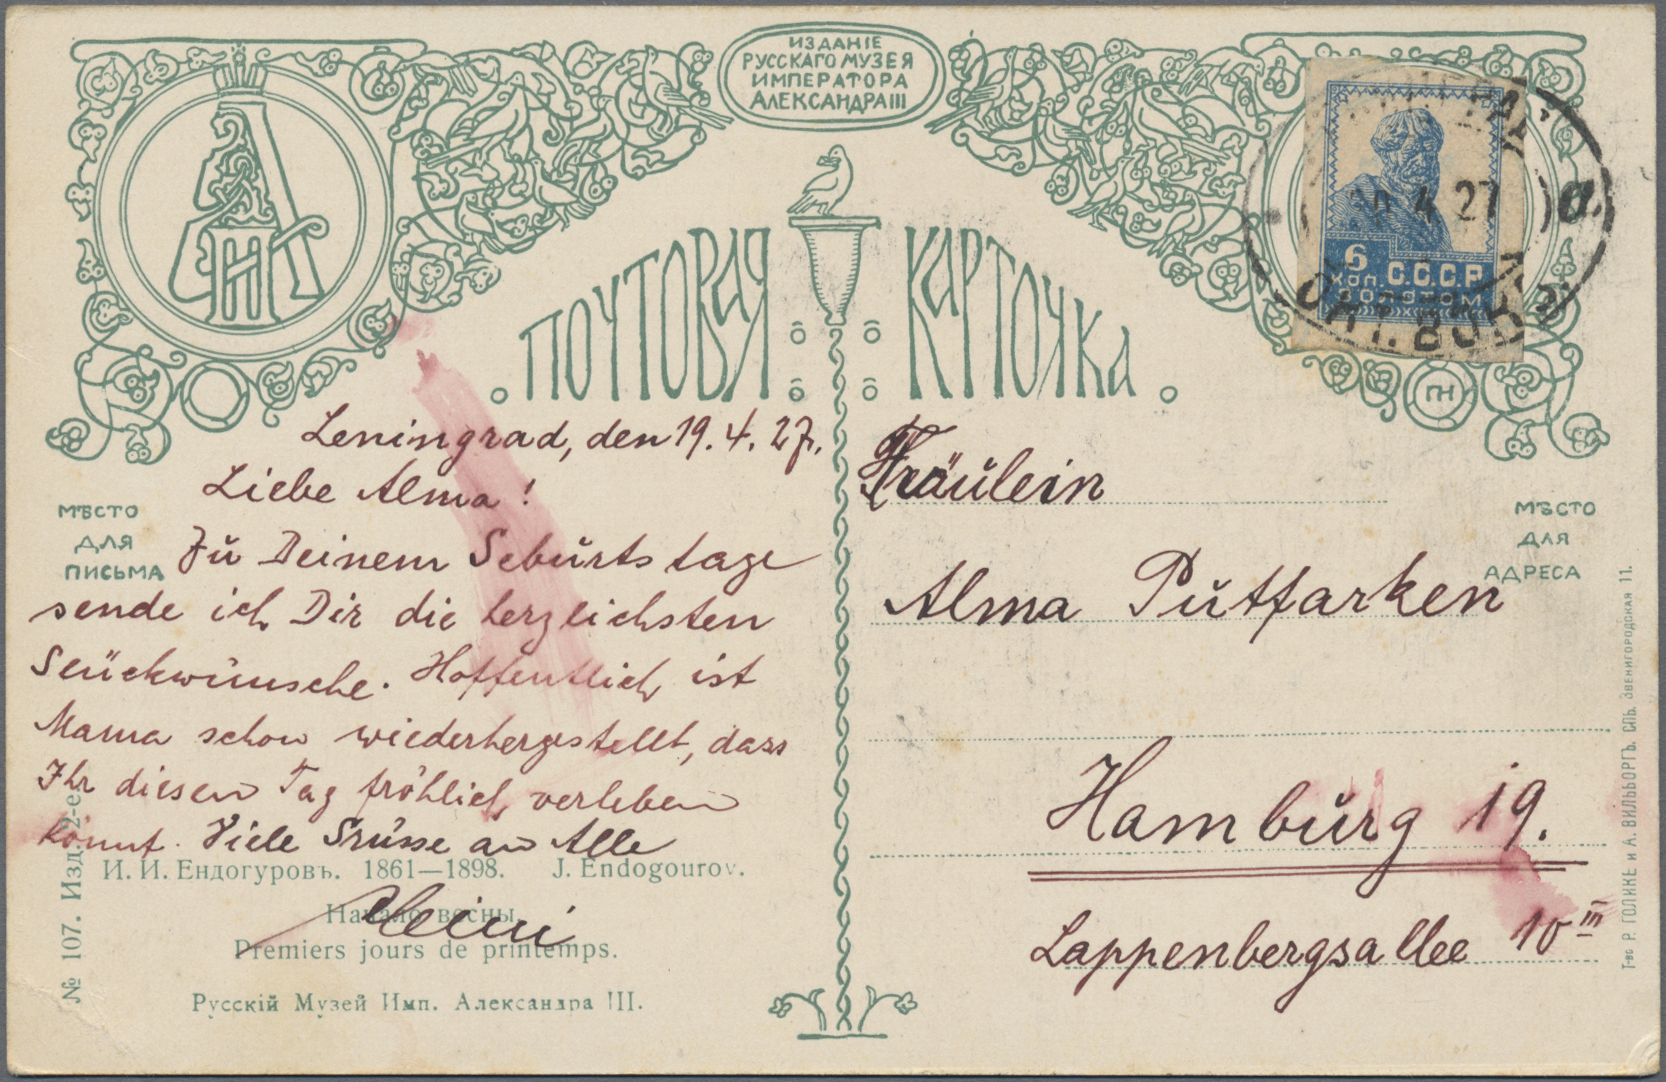 ИЗДАНІЕ
РУССКАГО МУЗЕЯ
ИМПЕРАТОРА
АЛЕКСАНДРА III
ПОЧТОВАЯ КАРТОЧКА
6
КОП. С.С.С.Р.
ЗОЛОТОМ
4 27
a
ПН
МѢСТО
ДЛЯ
ПИСЬМА
Leningrad, den 19.4.27.
Liebe Alma!
Zu Deinem Geburtstage
sende ich Dir die herzlichsten
Glückwünsche. Hoffentlich ist
Mama schon wiederhergestellt, dass
Ihr diesen Tag fröhlich verleben
könnt. Viele Grüsse an Alle
Heini
МѢСТО
ДЛЯ
АДРЕСА
Fräulein
Alma Putfarken
Hamburg 19.
Lappenbergsallee 10 III
И. И. Ендогуровъ. 1861—1898. J. Endogourov.
Начало весны.
Premiers jours de printemps.
Русскій Музей Имп. Александра III.
№ 107. Изд. 2-е.
Т-во Р. ГОЛИКЕ и А. ВИЛЬБОРГЪ. СПБ. ЗВЕНИГОРОДСКАЯ 11.